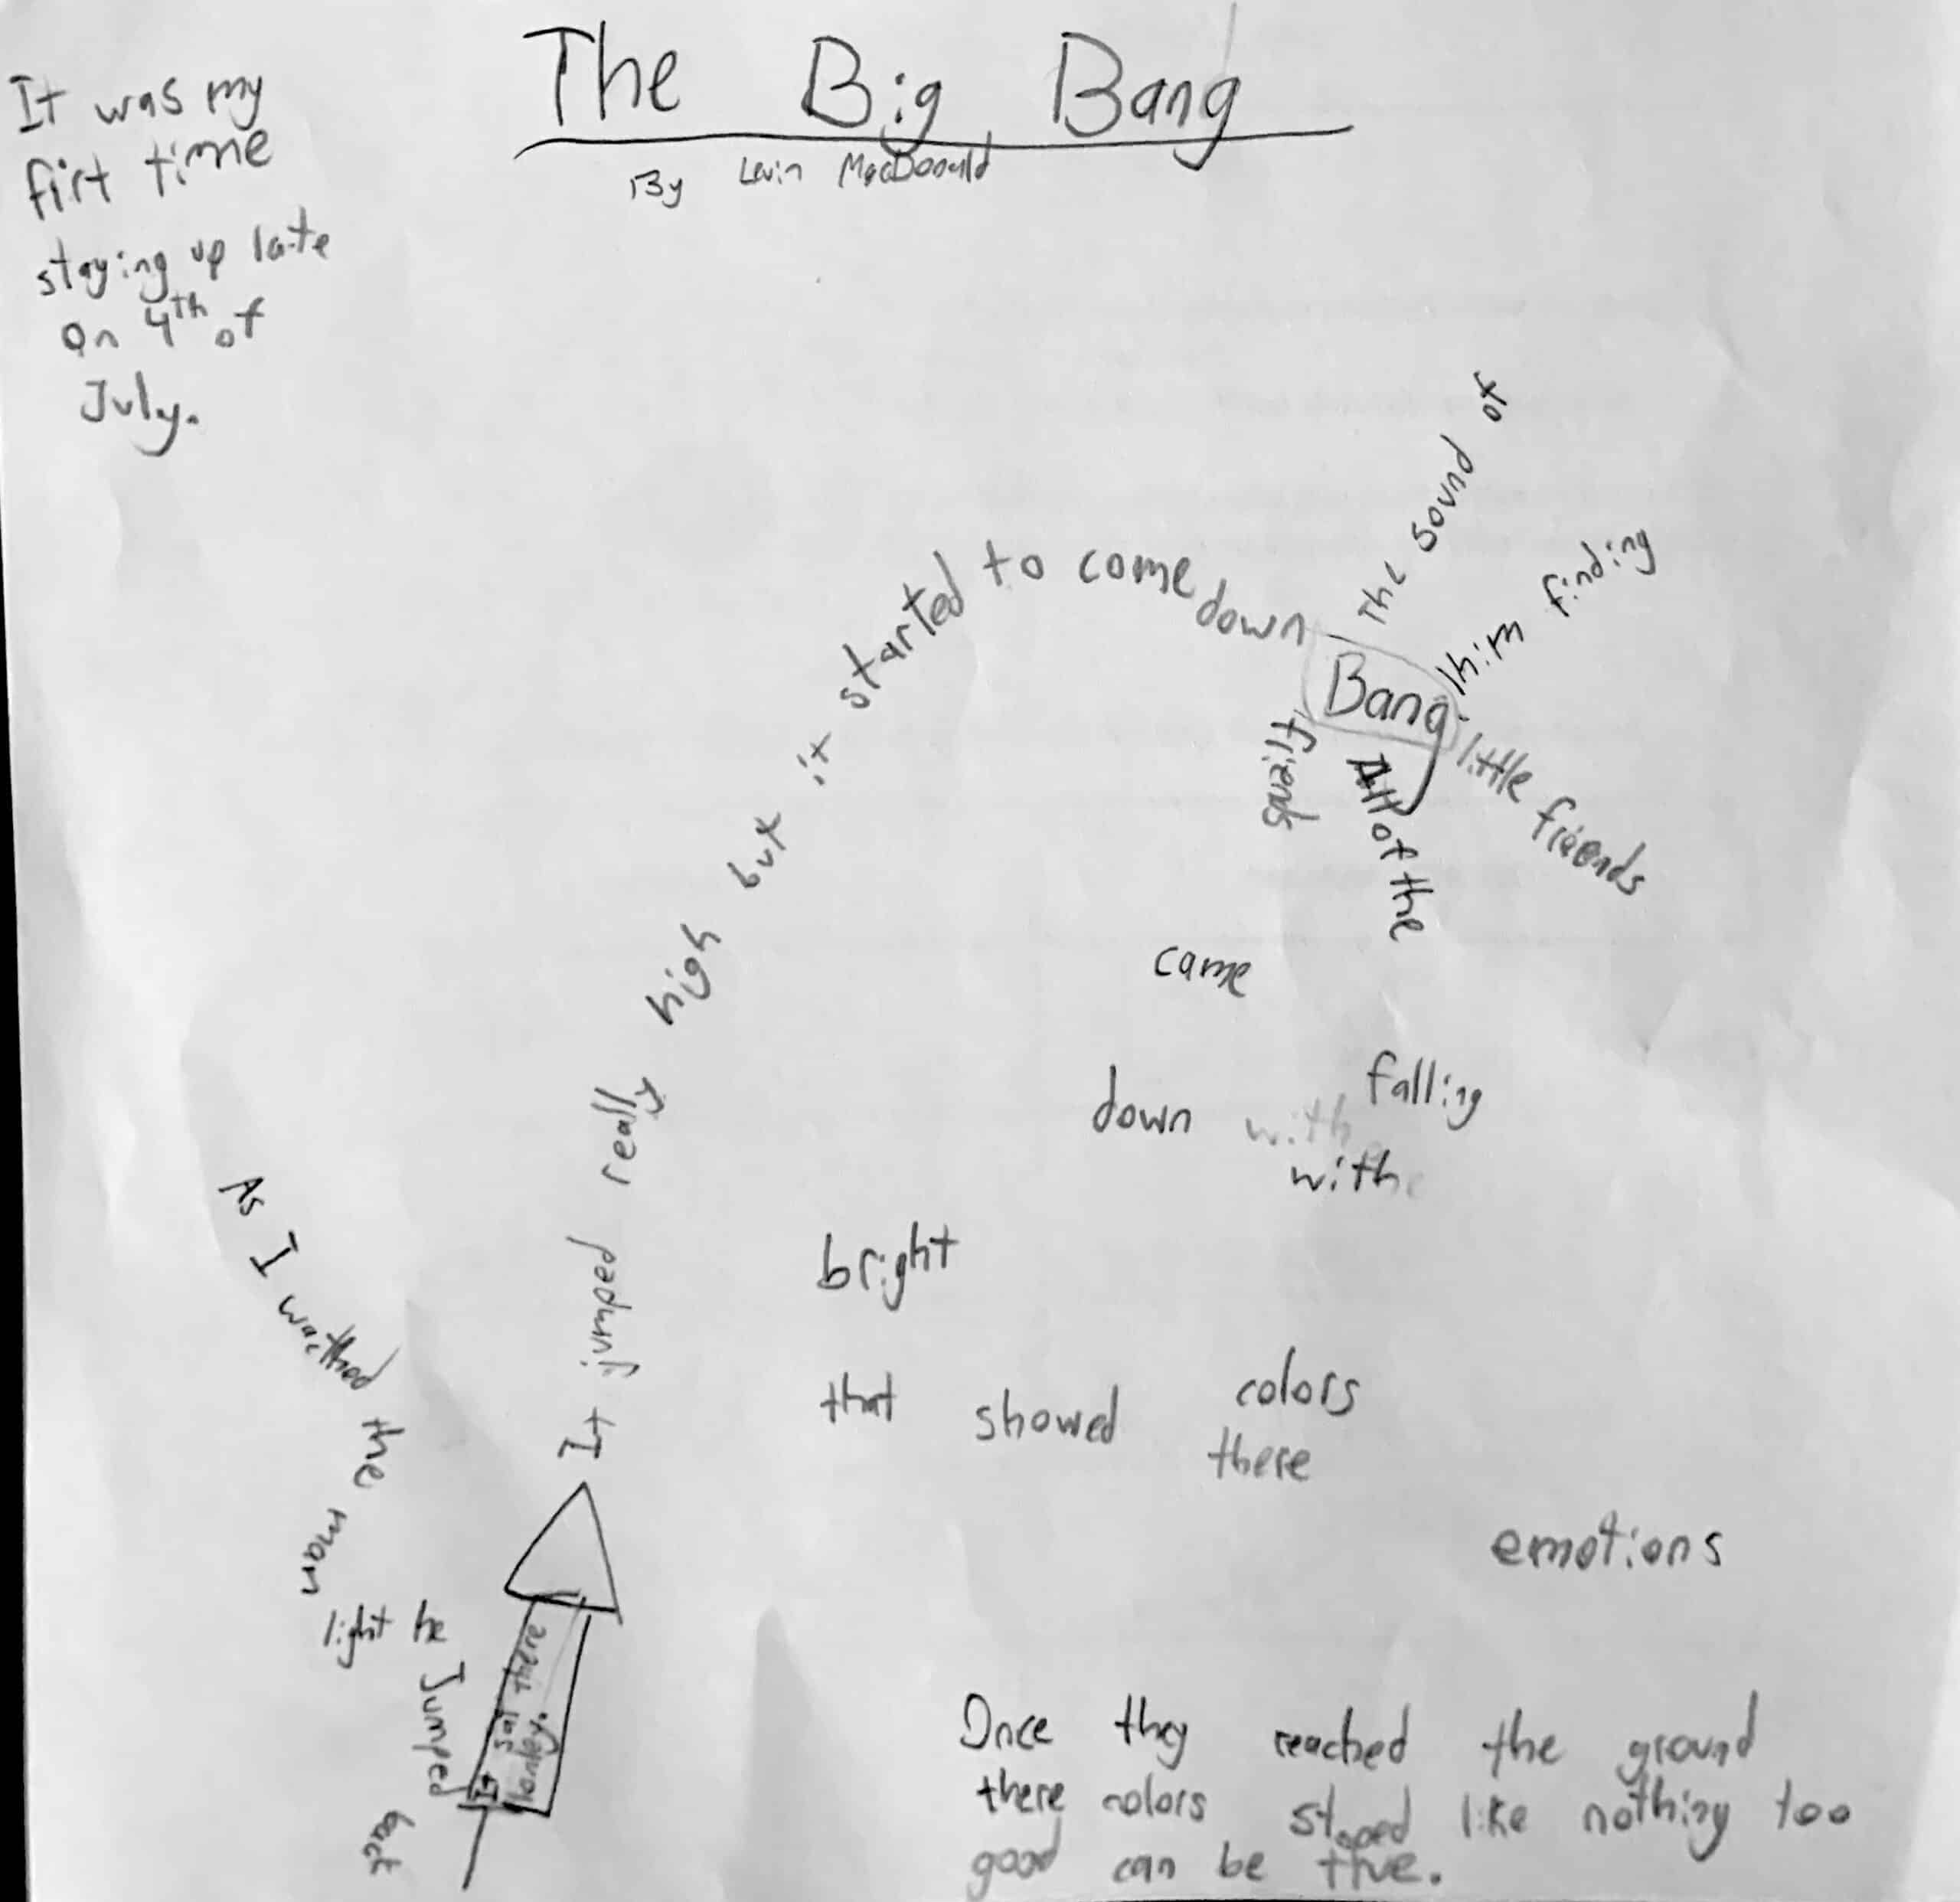 The Big Bang
By Levin MacDonald
It was my
firt time
staying up late
on 4th of
July.
As I wacthed the man
light he Jumped
back
It sat there
lonley.
It jumped really high but it started to come down
Bang
The sound of
him finding
little friends
All of the
came
falling
down with
with
bright
colors
that showed there
emotions
Once they reached the ground
there colors stoped like nothing too
good can be true.